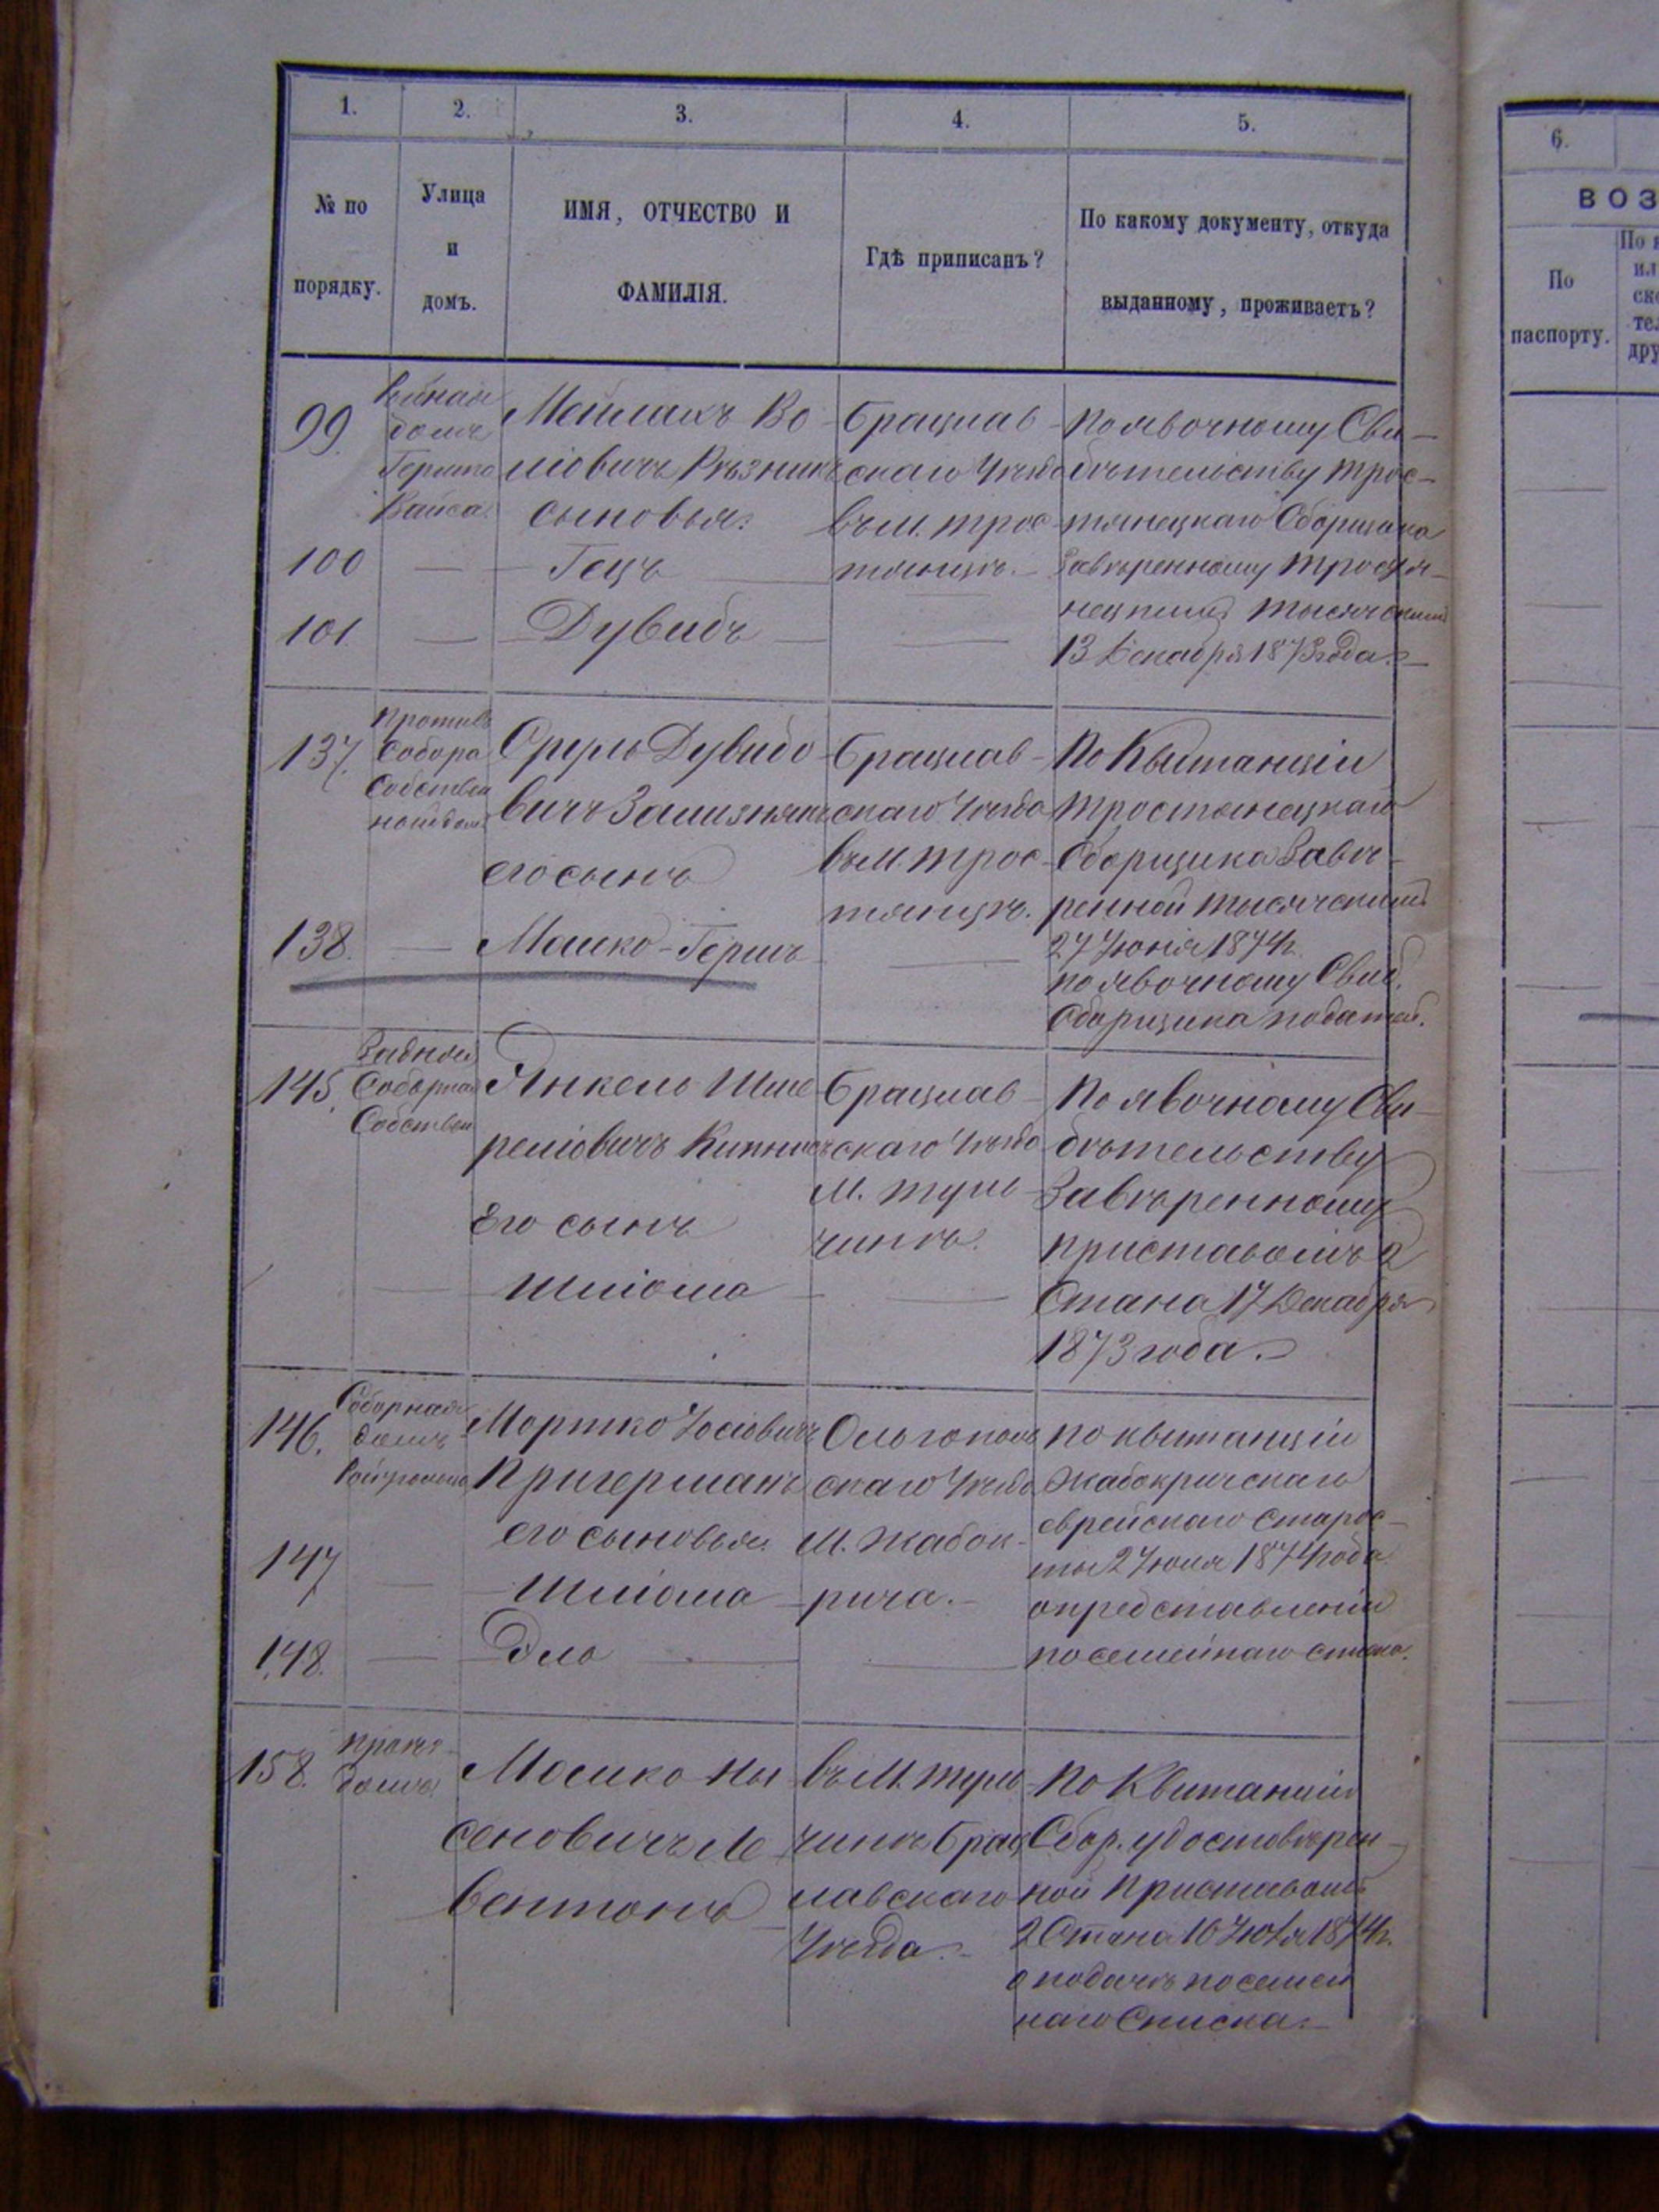 1. 2. 3. 4. 5.
№ по порядку.
Улица и домъ.
ИМЯ, ОТЧЕСТВО И ФАМИЛІЯ.
Гдѣ приписанъ?
По какому документу, откуда выданному, проживаетъ?
6.
ВОЗ
По паспорту.
99.
домъ
Гершка
Вайса.
Мейлахъ Во
ліовичъ Рѣзникъ
сыновья:
Брацлав
скаго Уѣзда
въ М. Трос
тянцѣ.
По явочному Сви
дѣтельству Трос
тянецкаго Сборщика
Завѣренному Тростя
нецкимъ Тысячскимъ
13 Декабря 1873 года.
100
Гецъ
101
Дувидъ
137.
Противъ
Собора
Собствен
номъ дом
Срулъ Дувидо
вичъ Зализнякъ
его сынъ
Брацлав
скаго Уѣзда
въ М. Трос
тянцѣ.
По Квитанціи
Тростянецкаго
Сборщика Завѣ
ренной Тысячскимъ
27 Іюня 1874 г.
по явочному Свид.
Сборщика податей.
138.
Машко-Гершъ
145.
Задняя
Соборная
Собствен
Янкель Шме
реліовичъ Кипнисъ
Его сынъ
Шліома
Брацлав
скаго Уѣзда
М. Туль
чинѣ.
По явочному Сви
дѣтельству
Завѣренному
Приставомъ 2
Стана 17 Декабря
1873 года.
146.
Соборная
домъ
Мортко Іосіовичъ
Пригерманъ
его сыновья:
Ольгополь
скаго Уѣзда
М. Жабок
рича.
По квитанціи
Жабокричскаго
еврейскаго Старос
ты 2 Іюля 1874 года
о представленіи
посемейнаго списка.
147
Шліома
148.
Эль
158.
дома
Мошко Ны
сеновичъ Ле
вентонъ
въ М. Туль
чинѣ Брац
лавскаго
Уѣзда.
По Квитанціи
Сбор. удостовѣрен
ной Приставомъ
2 Стана 16 Іюля 1874 г.
о подачѣ посемей
наго Списка.